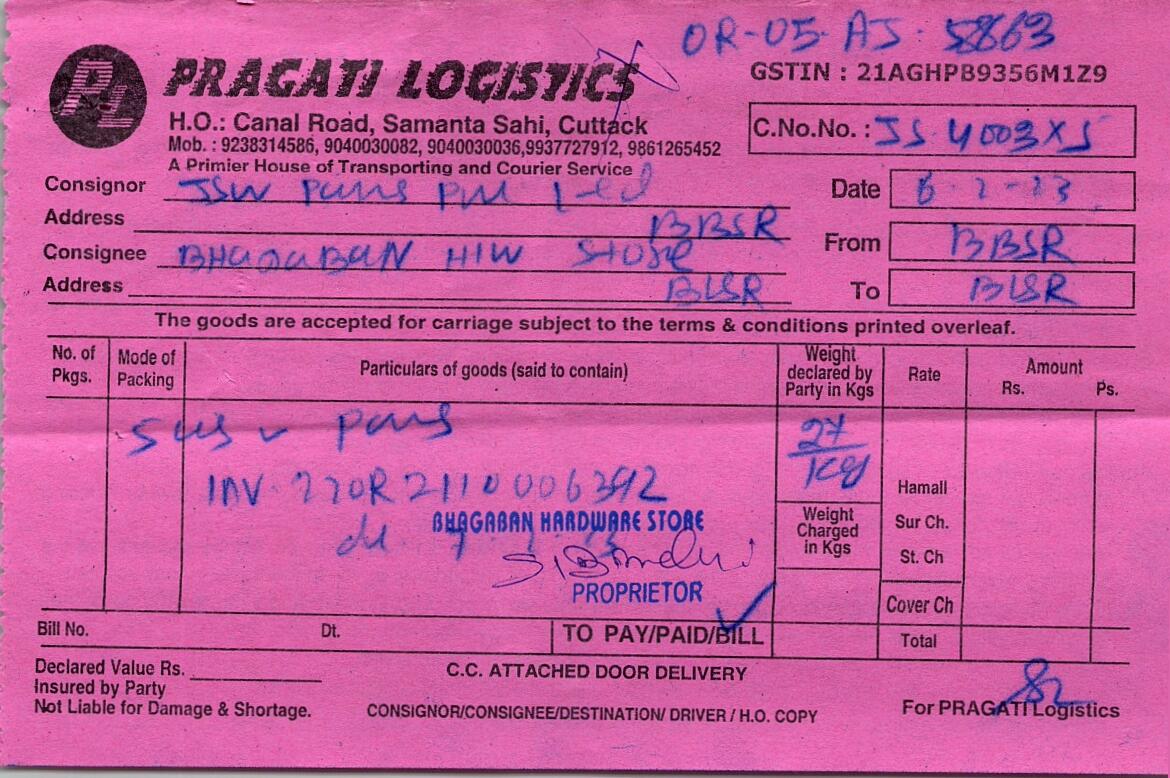 OR-05-AJ-5863
PL PRAGATI LOGISTICS
GSTIN : 21AGHPB9356M1Z9
H.O.: Canal Road, Samanta Sahi, Cuttack
C.No.No. :
Mob. : 9238314586, 9040030082, 9040030036,9937727912, 9861265452
A Primier House of Transporting and Courier Service
Consignor JSW
Date
Address BBSR
From BBSR
Consignee BHAGABAN H/W Store
Address BLSR
To BLSR
The goods are accepted for carriage subject to the terms & conditions printed overleaf.
No. of Pkgs. Mode of Packing Particulars of goods (said to contain) Weight declared by Party in Kgs Rate Amount Rs. Ps.
27 Kg
INV
Hamali
BHAGABAN HARDWARE STORE
Weight Charged in Kgs
Sur Ch.
St. Ch
PROPRIETOR
Cover Ch
Bill No. Dt. TO PAY/PAID/BILL Total
Declared Value Rs.
C.C. ATTACHED DOOR DELIVERY
Insured by Party
Not Liable for Damage & Shortage.
CONSIGNOR/CONSIGNEE/DESTINATION/ DRIVER / H.O. COPY
For PRAGATI Logistics